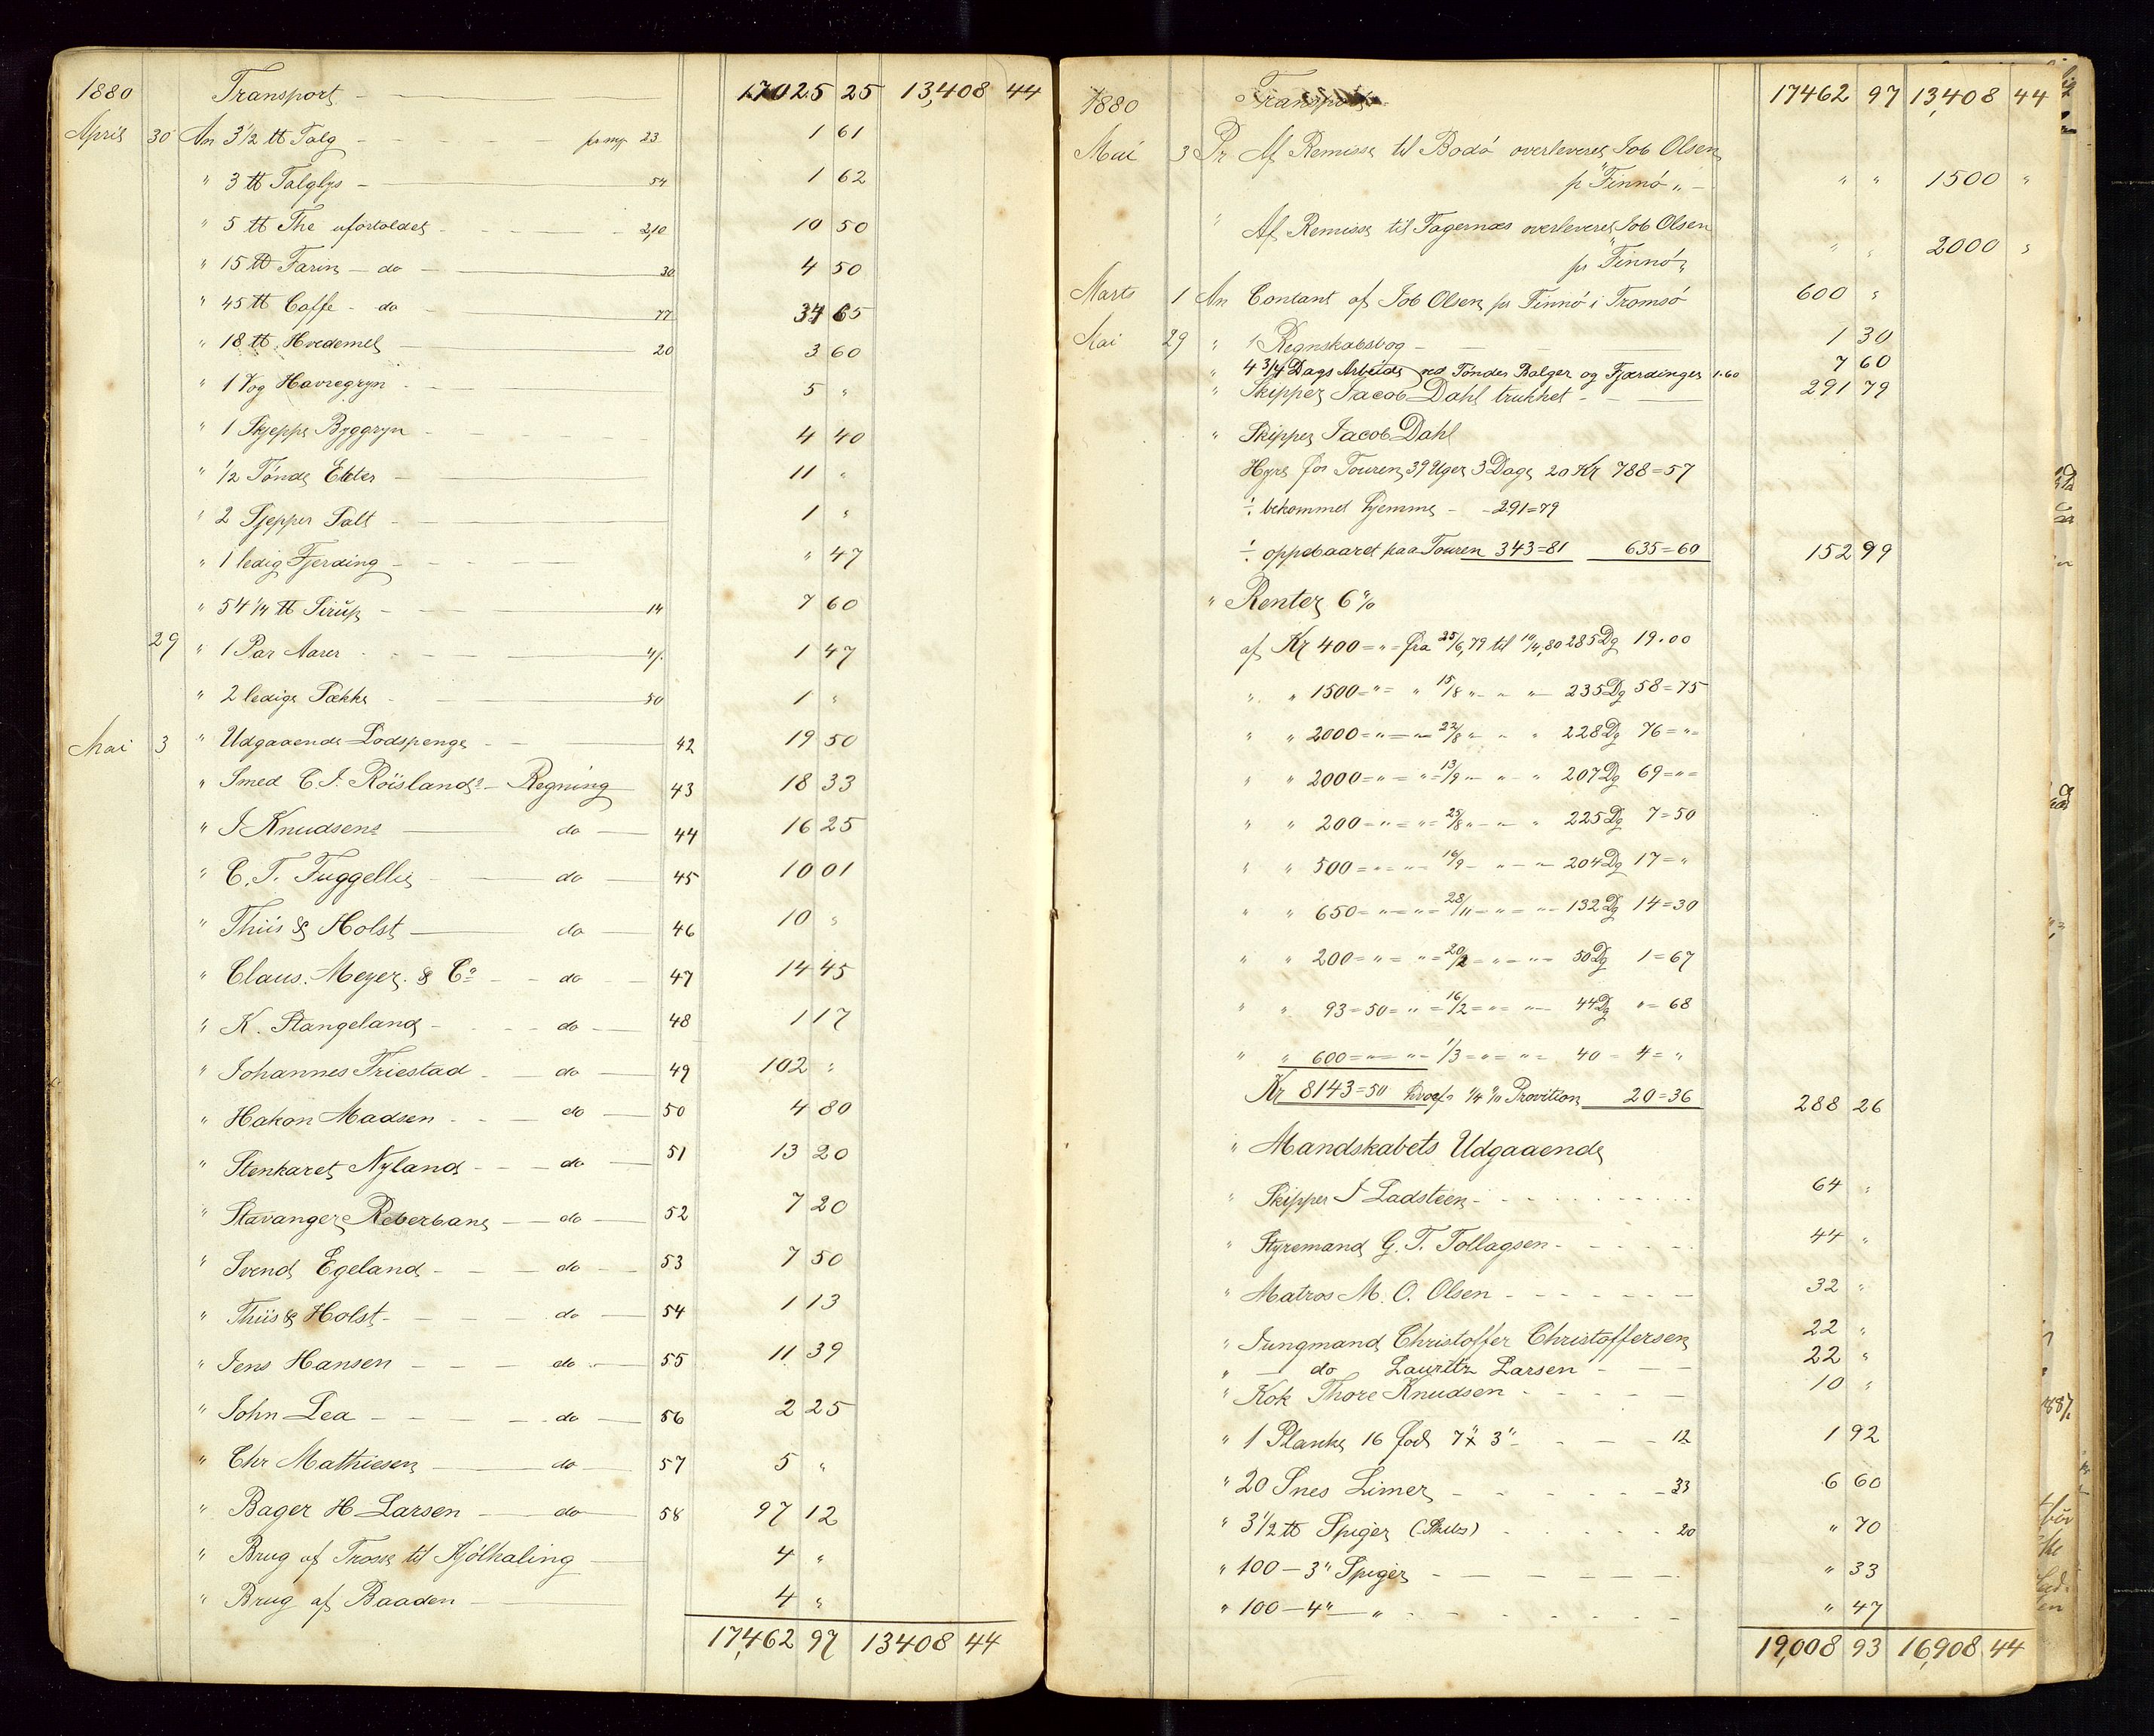 1880 Transport 17025 25 13,408 44
April 30 An 3 1/2 tt Talg pr mp. 23 1 61
" 3 tt Talglys 54 1 62
" 5 tt The ufortoldet 2,10 10 50
" 15 tt Farin do 30 4 50
" 45 tt Caffe do 77 34 65
" 18 tt Hvedemel 20 3 60
" 1 Vog Havregryn 5 "
" 1 Skjeppe Byggryn 4 40
" 1/2 Tønde Erter 11 "
" 2 Sjepper Salt 1 "
" 1 ledig Fjerding " 47
" 54 1/4 tt Sirup 14 7 60
29 " 1 Par Aarer 1 47
" 2 ledige Sække 50 1 "
Mai 3 " Udgaaende Lodspenge 42 19 50
" Smed C. J. Röislands Regning 43 18 33
" J Knudsens do 44 16 25
" C. T. Fuggellis do 45 10 01
" Thiis & Holst do 46 10 "
" Claus. Meyer. & Co do 47 14 45
" K. Stangeland do 48 1 17
" Johannes Friestad do 49 102 "
" Hakon Madsen do 50 4 80
" Stenkaret Nyland do 51 13 20
" Stavanger Reberbane do 52 7 20
" Svend Egeland do 53 7 50
" Thiis & Holst do 54 1 13
" Jens Hansen do 55 11 39
" John Lea do 56 2 25
" Chr Mathiesen do 57 5 "
" Bager H Larsen do 58 97 12
" Brug af Trosse til Kjølhaling 4 "
" Brug af Baaden 4 "
17,462 97 13408 44
1880 Transport 17462 97 13,408 44
Mai 3 Pr Af Remisse til Bodø overleveret Job Olsen
pr "Finnø" " " 1500 "
" Af Remisse til Fagernæs overleveret Job Olsen
pr "Finnø" " " 2000 "
Marts 1 An Contant af Job Olsen pr Finnø i Tromsø 600 "
Mai 29 " 1 Regnskabsbog 1 30
" 4 3/4 Dags Arbeide ved Tønder Balger og Fjærdinger 1.60 7 60
" Skipper Jacob Dahl trukket 291 79
" Skipper Jacob Dahl
Hyre for Touren 39 Uger 3 Dage 20 Kr 788=57
÷ bekommet hjemme 291=79
÷ oppebaaret paa Touren 343=81 635=60 152 99
" Renter 6 %
af Kr 400=" fra 25/6,79 til 10/4,80 285 Dg 19.00
" " 1500=" " 15/8 " " 235 Dg 58=75
" " 2000=" " 22/8 " " 228 Dg 76="
" " 2000=" " 13/9 " " 207 Dg 69="
" " 200=" " 25/8 " " 225 Dg 7=50
" " 500=" " 16/9 " " 204 Dg 17="
" " 650=" " 28/11 " " 132 Dg 14=30
" " 200=" " 20/2 " " 50 Dg 1=67
" " 93=50=" 16/2 " " 44 Dg "=68
" " 600=" " 1/3 " " 40 4="
Kr 8143=50 hvoraf 1/4 % Provition 20=36 288 26
" Mandskabets Udgaaende
" Skipper J Ladsteen 64 "
" Styremand G. T. Tollagsen 44 "
" Matros M. O. Olsen 32 "
" Jungmand Christoffer Christoffersen 22 "
" do Lauritz Larsen 22 "
" Kok Thore Knudsen 10 "
" 1 Planke 16 fod 7" x 3" 12 1 92
" 20 Snes Limer 33 6 60
" 3 1/2 tt Spiger (Skibs) 20 " 70
" 100 - 3" Spiger " 33
" 100 - 4" " " 47
19,008 93 16,908 44